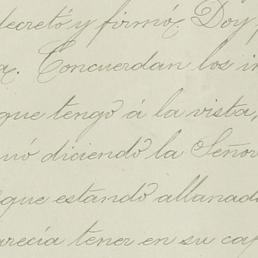 decretó y firmó. Doy
Concuerdan los in
que tengo á la vista,
nó diciendo la Señor
que estando allanad
arecia tener en su ca